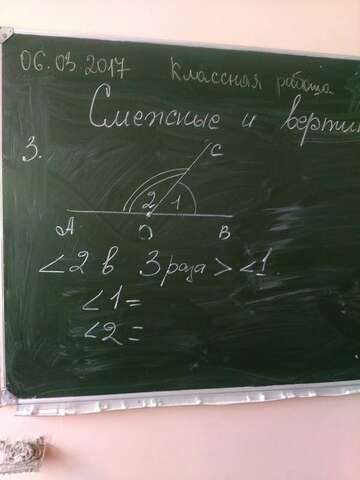 06.03.2017 Классная работа
Смежные и
3.
C
2 1
A O B
∠2 в 3 раза > ∠1.
∠1=
∠2=